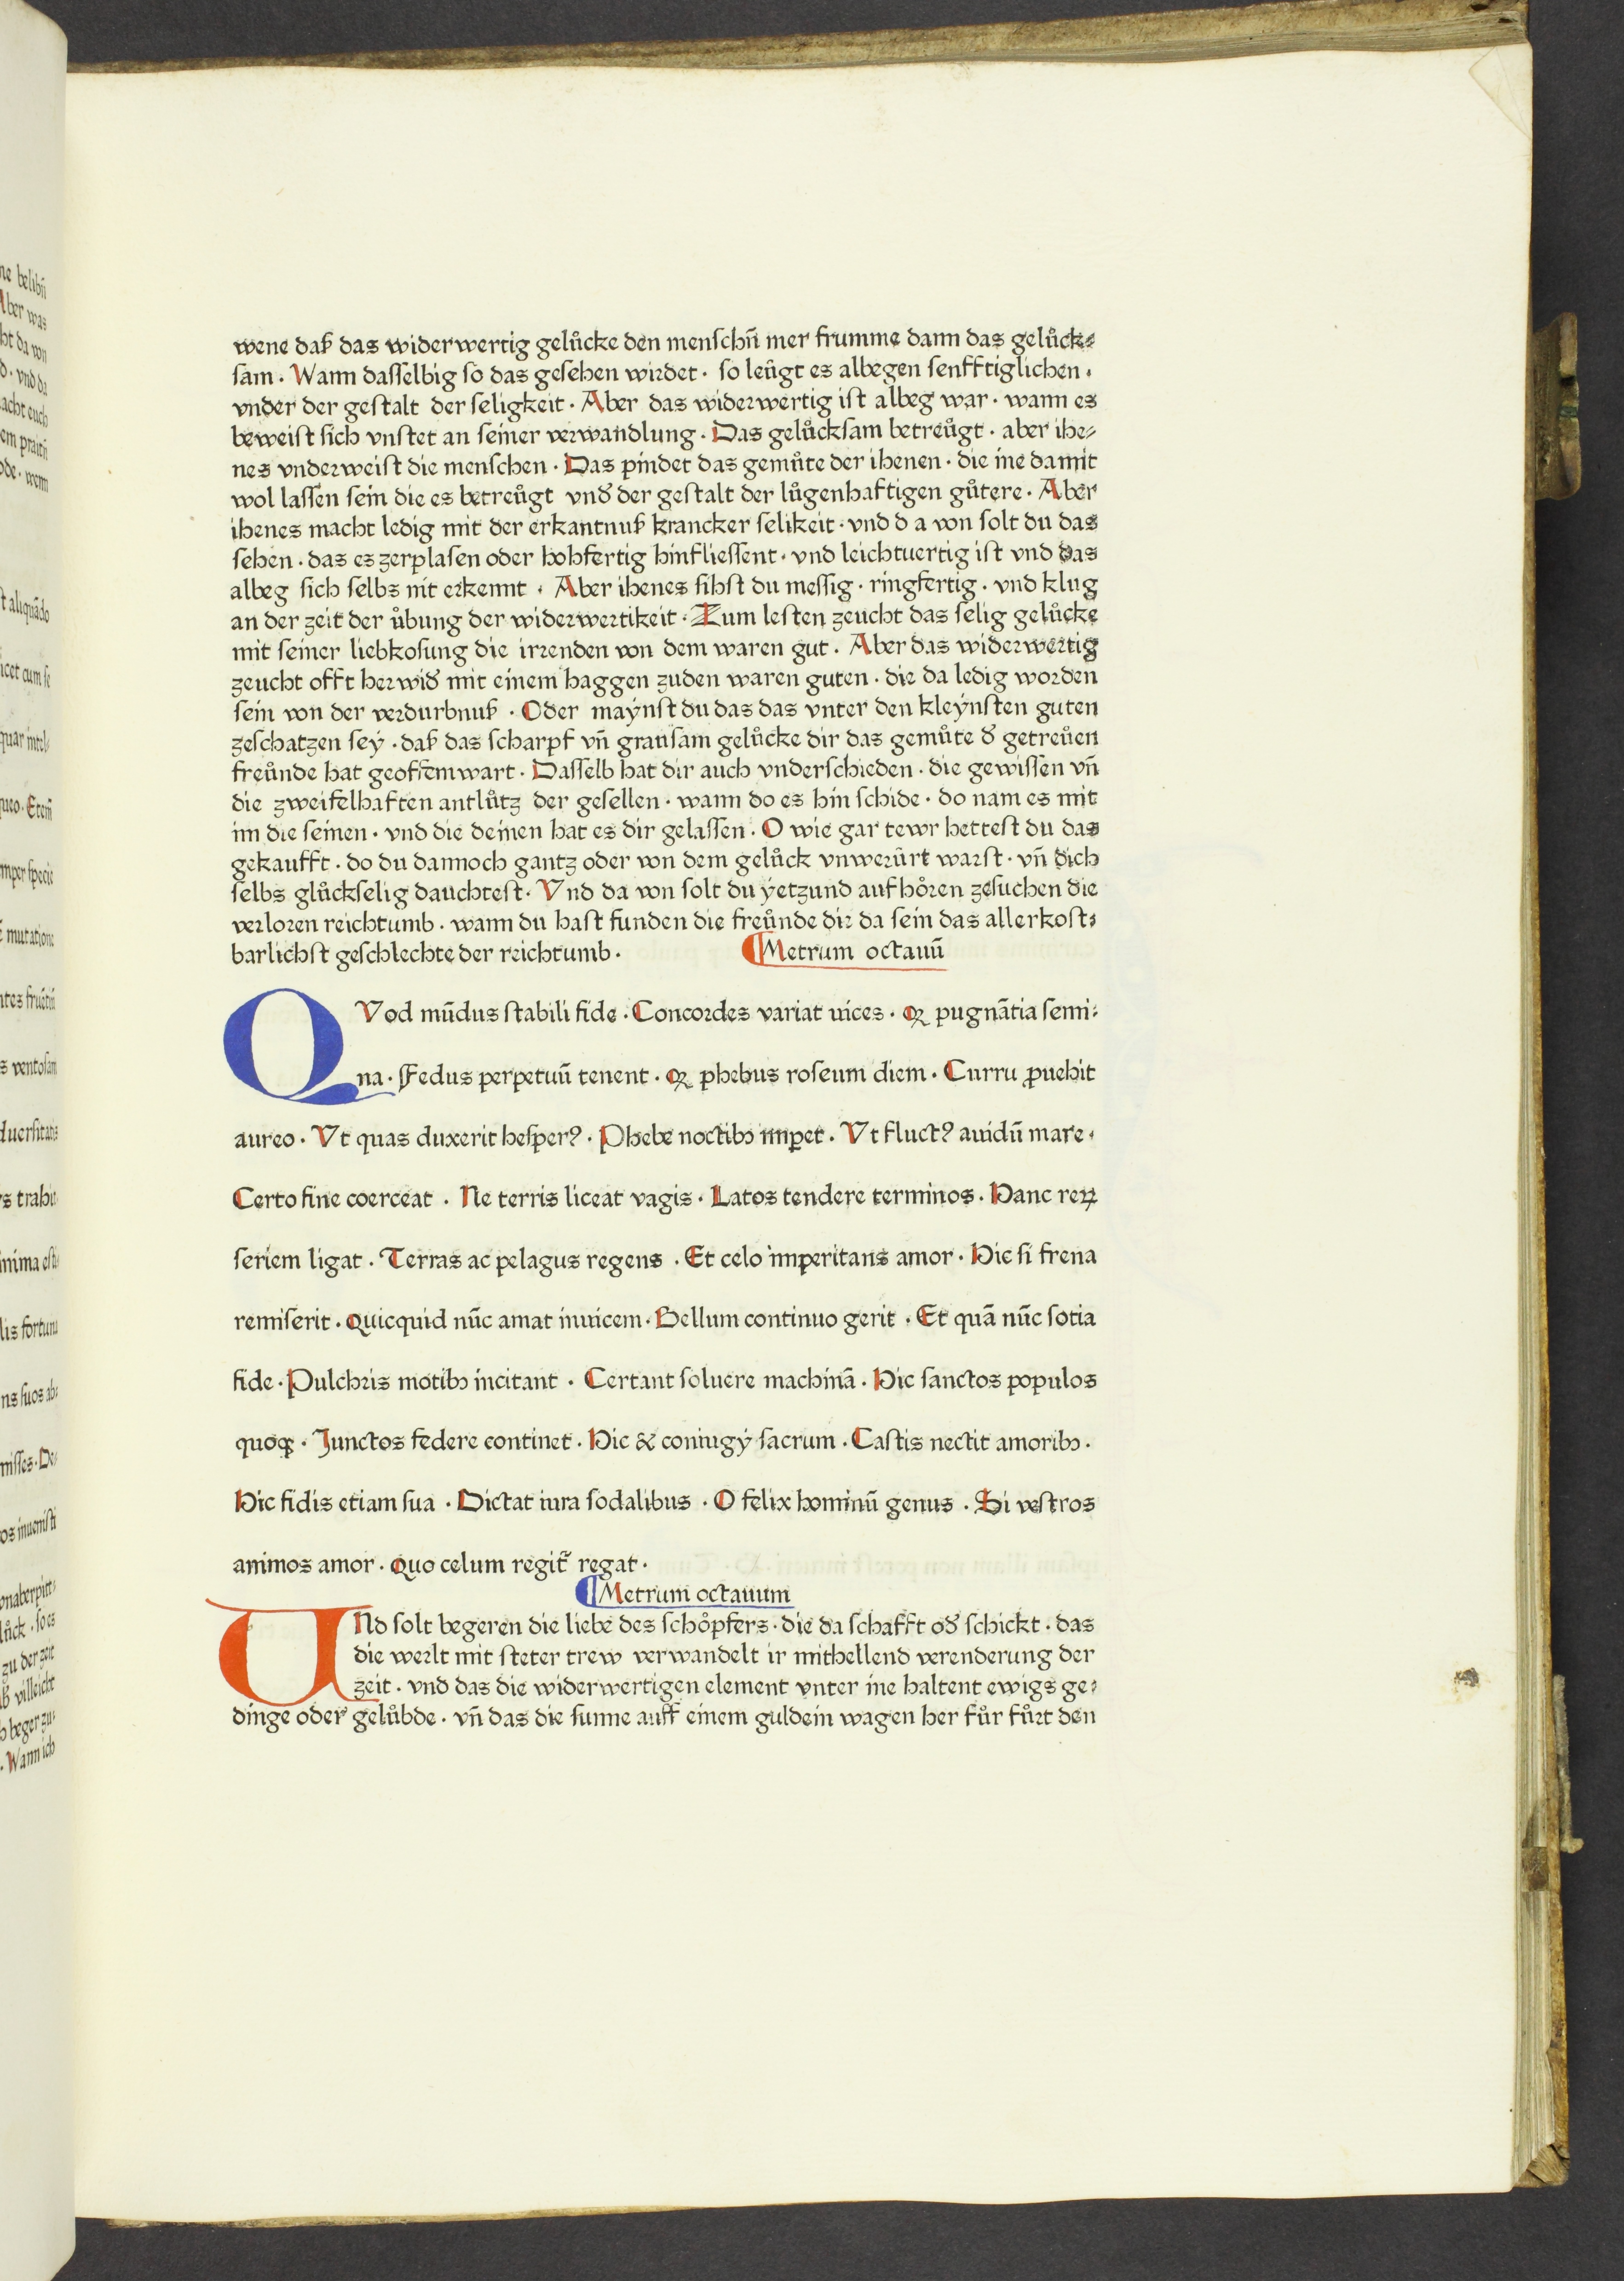 wene daß das widerwertig gelůcke den menschñ mer frumme dann das gelůck⸗
sam · Wann dasselbig so das gesehen wirdet · so leůgt es albegen senfftiglichen ·
vnder der gestalt der seligkeit · Aber das widerwertig ist albeg war · wann es
beweist sich vnstet an seiner verwandlung · Das gelůcksam betreůgt · aber ihe⸗
nes vnderweist die menschen · Das pindet das gemůte der ihenen · die ine damit
wol lassen sein die es betreůgt vnd̛ der gestalt der lůgenhaftigen gůtere · Aber
ihenes macht ledig mit der erkantnuß krancker selikeit · vnd d a von solt du das
sehen · das es zerplasen oder hohfertig hinfliessent · vnd leichtuertig ist vnd das
albeg sich selbs nit erkennt · Aber ihenes sihst du messig · ringfertig · vnd klug
an der zeit der ůbung der widerwertikeit · Zum lesten zeucht das selig gelůcke
mit seiner liebkosung die irrenden von dem waren gut · Aber das widerwertig
zeucht offt herwid̛ mit einem haggen zuden waren guten · die da ledig worden
sein von der verdurbnuß · Oder maÿnst du das das vnter den kleÿnsten guten
zeschatzen seÿ · daß das scharpf vñ grausam gelůcke dir das gemůte d̛ getreůen
freůnde hat geoffemwart · Dasselb hat dir auch vnderschieden · die gewissen vñ
die zweifelhaften antlůtz der gesellen · wann do es hin schide · do nam es mit
im die seinen · vnd die deinen hat es dir gelassen · O wie gar tewr hettest du das
gekaufft · do du dannoch gantz oder von dem gelůck vnwerůrt warst · vñ dich
selbs glůckselig dauchtest · Vnd da von solt du ÿetzund aufhőren zesuchen die
verloren reichtumb · wann du hast funden die freůnde dir da sein das allerkost⸗
barlichst geschlechte der reichtumb · ¶Metrum octauū
QVod mūdus stabili fide · Concordes variat uices · Qꝫ pugnātia semi⸗
na · Fedus perpetuū tenent · Qꝫ phebus roseum diem · Curru ꝓuehit
aureo · Vt quas duxerit hesperꝰ · Phebe noctibꝫ imꝑet · Vt fluctꝰ auidū mare ·
Certo fine coerceat · Ne terris liceat vagis · Latos tendere terminos · Hanc reꝝ
seriem ligat · Terras ac pelagus regens · Et celo imperitans amor · Hic si frena
remiserit · Quicquid nūc amat inuicem · Bellum continuo gerit · Et quā nūc sotia
fide · Pulchris motibꝫ incitant · Certant soluere machinā · Hic sanctos populos
quoqꝫ · Junctos federe continet · Hic & coniugÿ sacrum · Castis nectit amoribꝫ ·
Hic fidis etiam sua · Dictat iura sodalibus · O felix hominū genus · Si vestros
animos amor · Quo celum regit᷑ regat ·
¶Metrum octauum
UNd solt begeren die liebe des schőpfers · die da schafft od̛ schickt · das
die werlt mit steter trew verwandelt ir mithellend verenderung der
zeit · vnd das die widerwertigen element vnter ine haltent ewigs ge⸗
dinge oder gelůbde · vñ das die sunne auff einem guldein wagen her fůr fůrt den